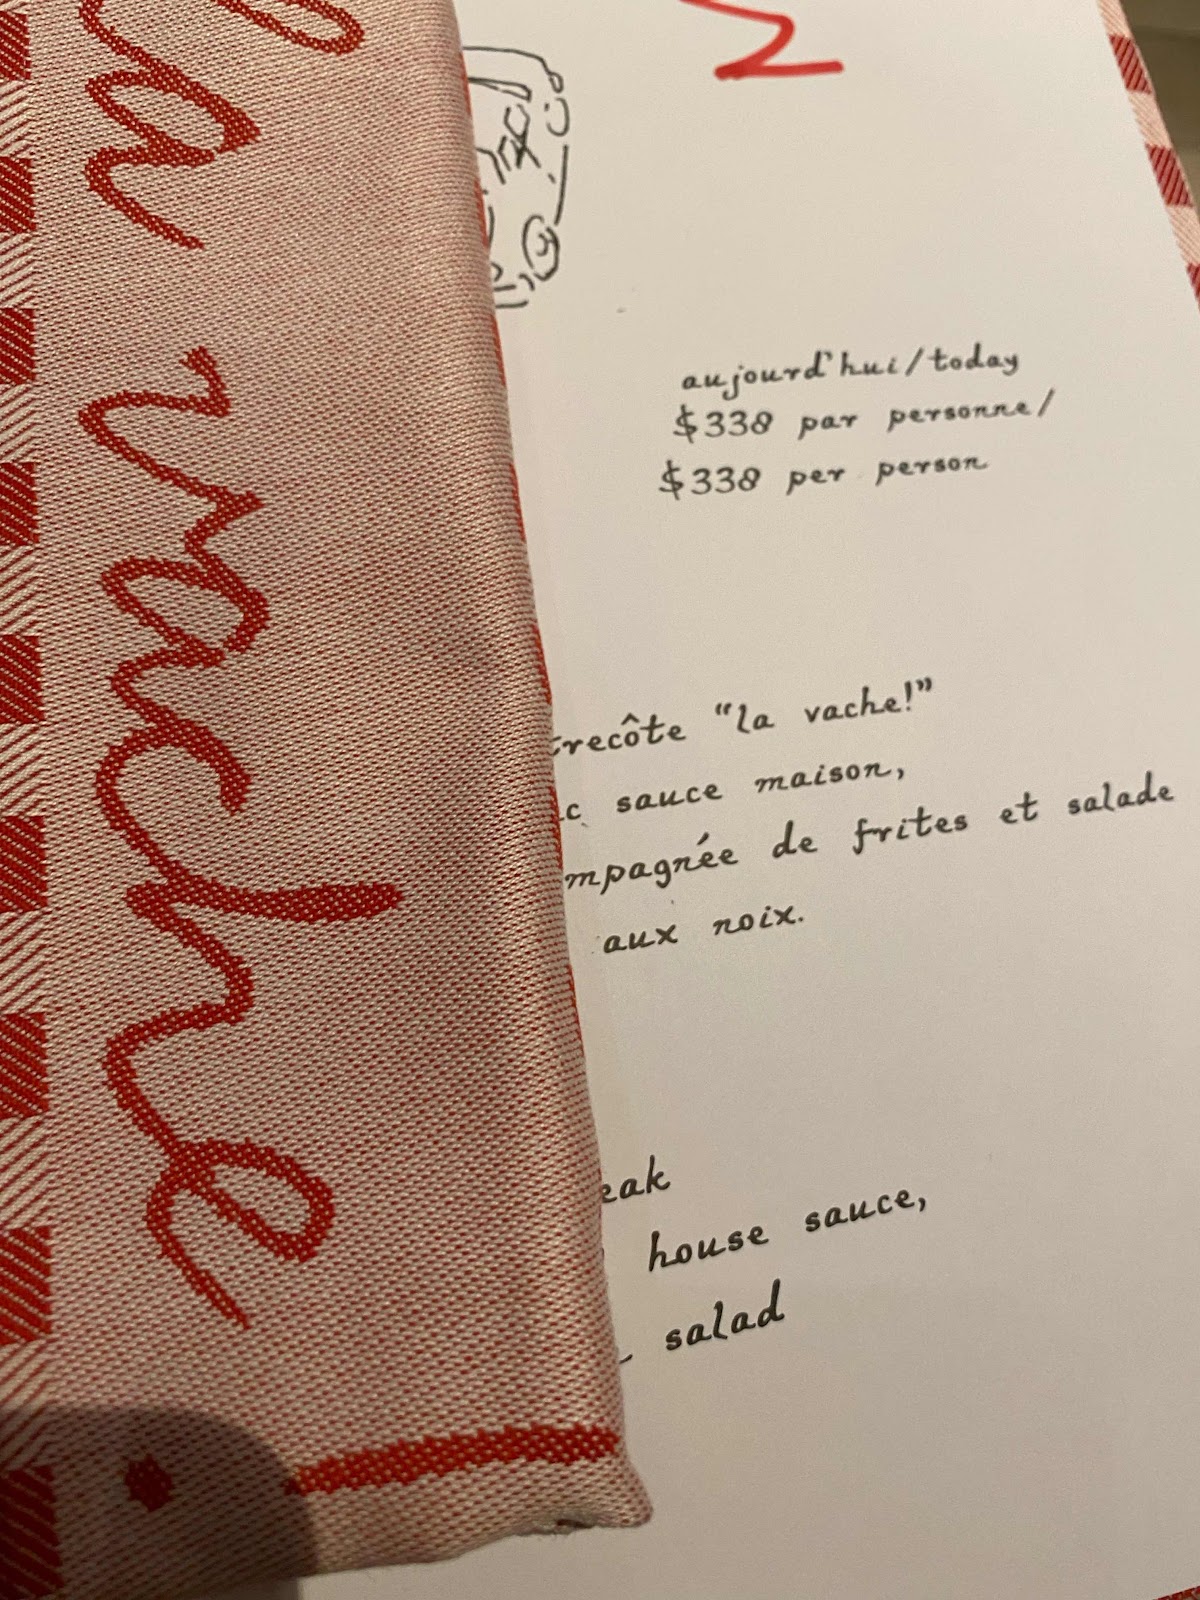 la vache!
aujourd'hui/today
$338 par personne/
$338 per person
trecôte "la vache!"
c sauce maison,
mpagnée de frites et salade
aux noix.
eak
house sauce,
salad